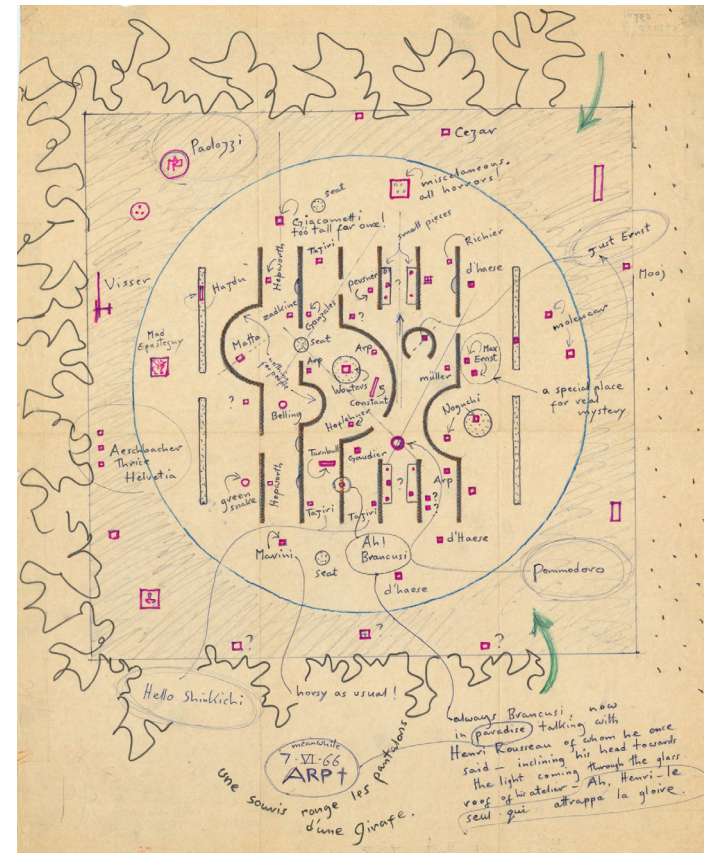 Paolozzi
Cezar
miscelaneous.
all horrors!
seat
Giacometti
too tall for one!
small pieces
Richier
Just Ernst
Tajiri
Hepworth
pevsner
d'haese
Mooj
Visser
Hajdu
?
zadkine
Gonzales
molencar
Mad
Matta
seat
Arp
Arp
Max
Ernst
müller
Wouters
Constant
a special place
for real
mystery
?
Belling
Noguchi
Hoflehner
Aeschbacher
Thrice
Helvetia
Turnbull
Gaudier
green
snake
Hepworth
?
?
Arp
?
?
Tajiri
Tajiri
Marini
Ah!
Brancusi
d'Haese
seat
d'haese
Pommodoro
?
?
?
Hello Shinkichi
horsy as usual!
always Brancusi, now
in paradise talking with
Henri Rousseau of whom he once
said – inclining his head towards
the light coming through the glass
roof of his atelier – Ah, Henri – le
seul qui attrappa la gloire.
meanwhile
7·VI·66
ARP†
une souris ronge les pantalons
d'une girafe.